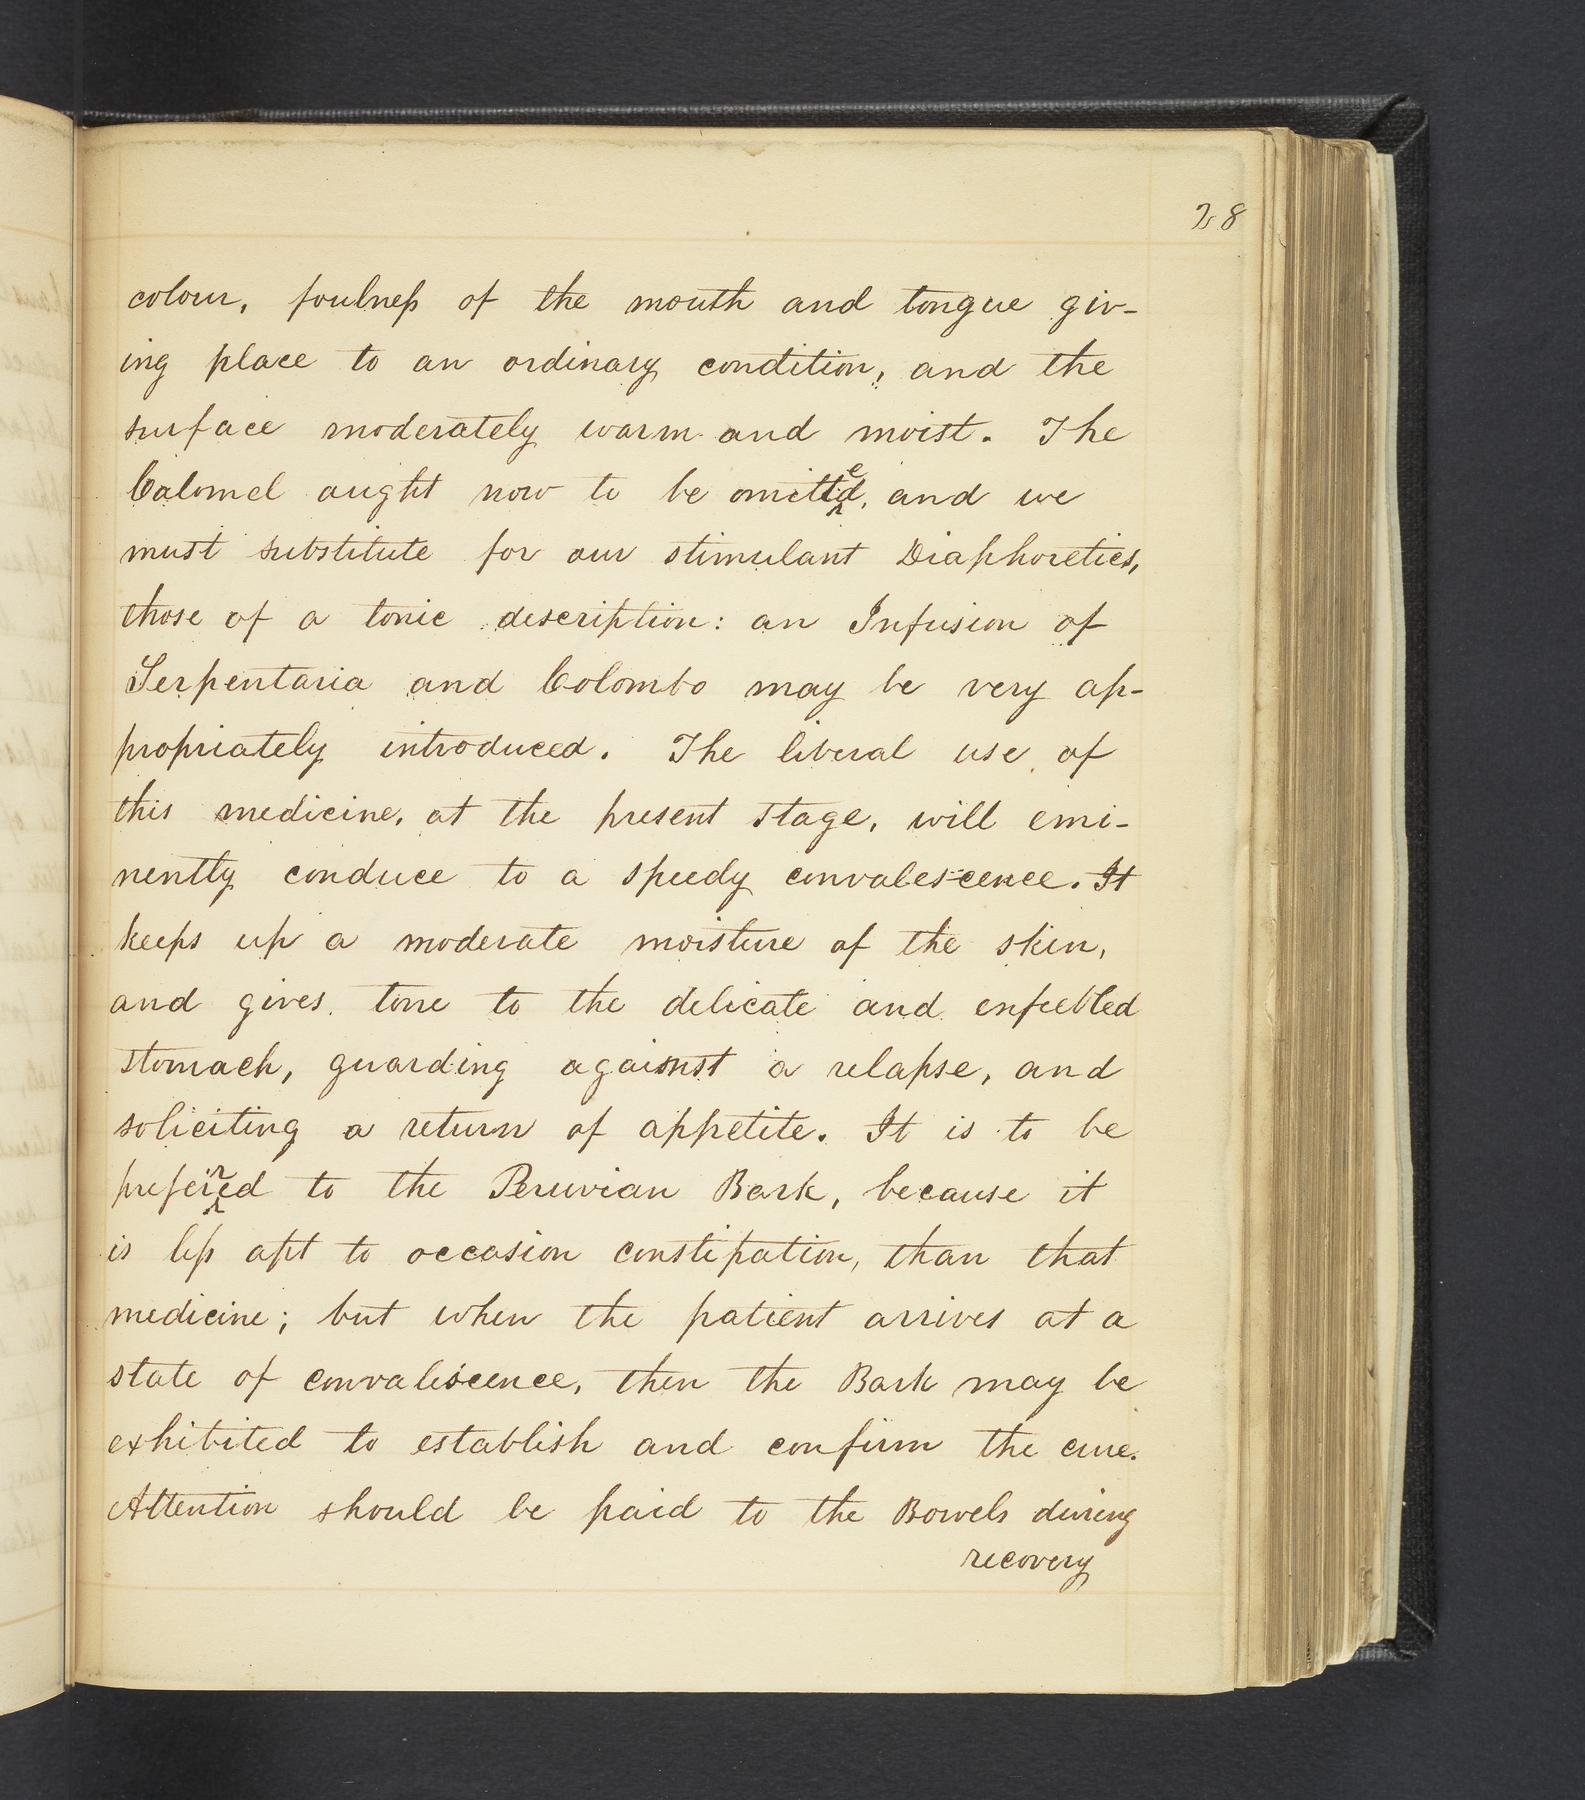 28
colour, foulness of the mouth and tongue giv-
ing place to an ordinary condition, and the
surface moderately warm and moist. The
Calomel aught now to be omitted, and we
must substitute for our stimulant Diaphoretics,
those of a tonic description: an Infusion of
Serpentaria and Colombo may be very ap-
propriately introduced. The liberal use of
this medicine, at the present stage, will emi-
nently conduce to a speedy convalescence. It
keeps up a moderate moisture of the skin,
and gives tone to the delicate and enfeebled
stomach, guarding against a relapse, and
soliciting a return of appetite. It is to be
preferred to the Peruvian Bark, because it
is less apt to occasion constipation, than that
medicine; but when the patient arrives at a
state of convaliscence, then the Bark may be
exhibited to establish and confirm the cure.
Attention should be paid to the Bowels during
recovery